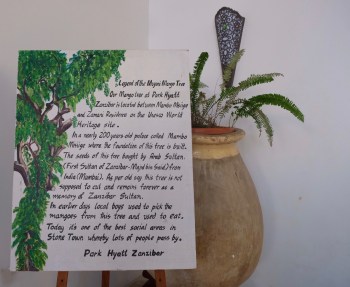 Legend of the Miyavi Mango Tree
Our Mango tree at Park Hyatt
Zanzibar is located between Mambo Msiige
and Zamani Residence on the Unesco World
Heritage site.
In a nearly 200 years old palace called Mambo
Msiige where the foundation of this tree is built.
The seeds of this tree bought by Arab Sultan.
(First Sultan of Zanzibar - Majid bin Said) from
India (Mumbai). As per old say this tree is not
supposed to cut and remains forever as a
memory of Zanzibar Sultan.
In earlier days local boys used to pick the
mangoes from this tree and used to eat.
Today it's one of the best social areas in
Stone Town whereby lots of people pass by.
Park Hyatt Zanzibar